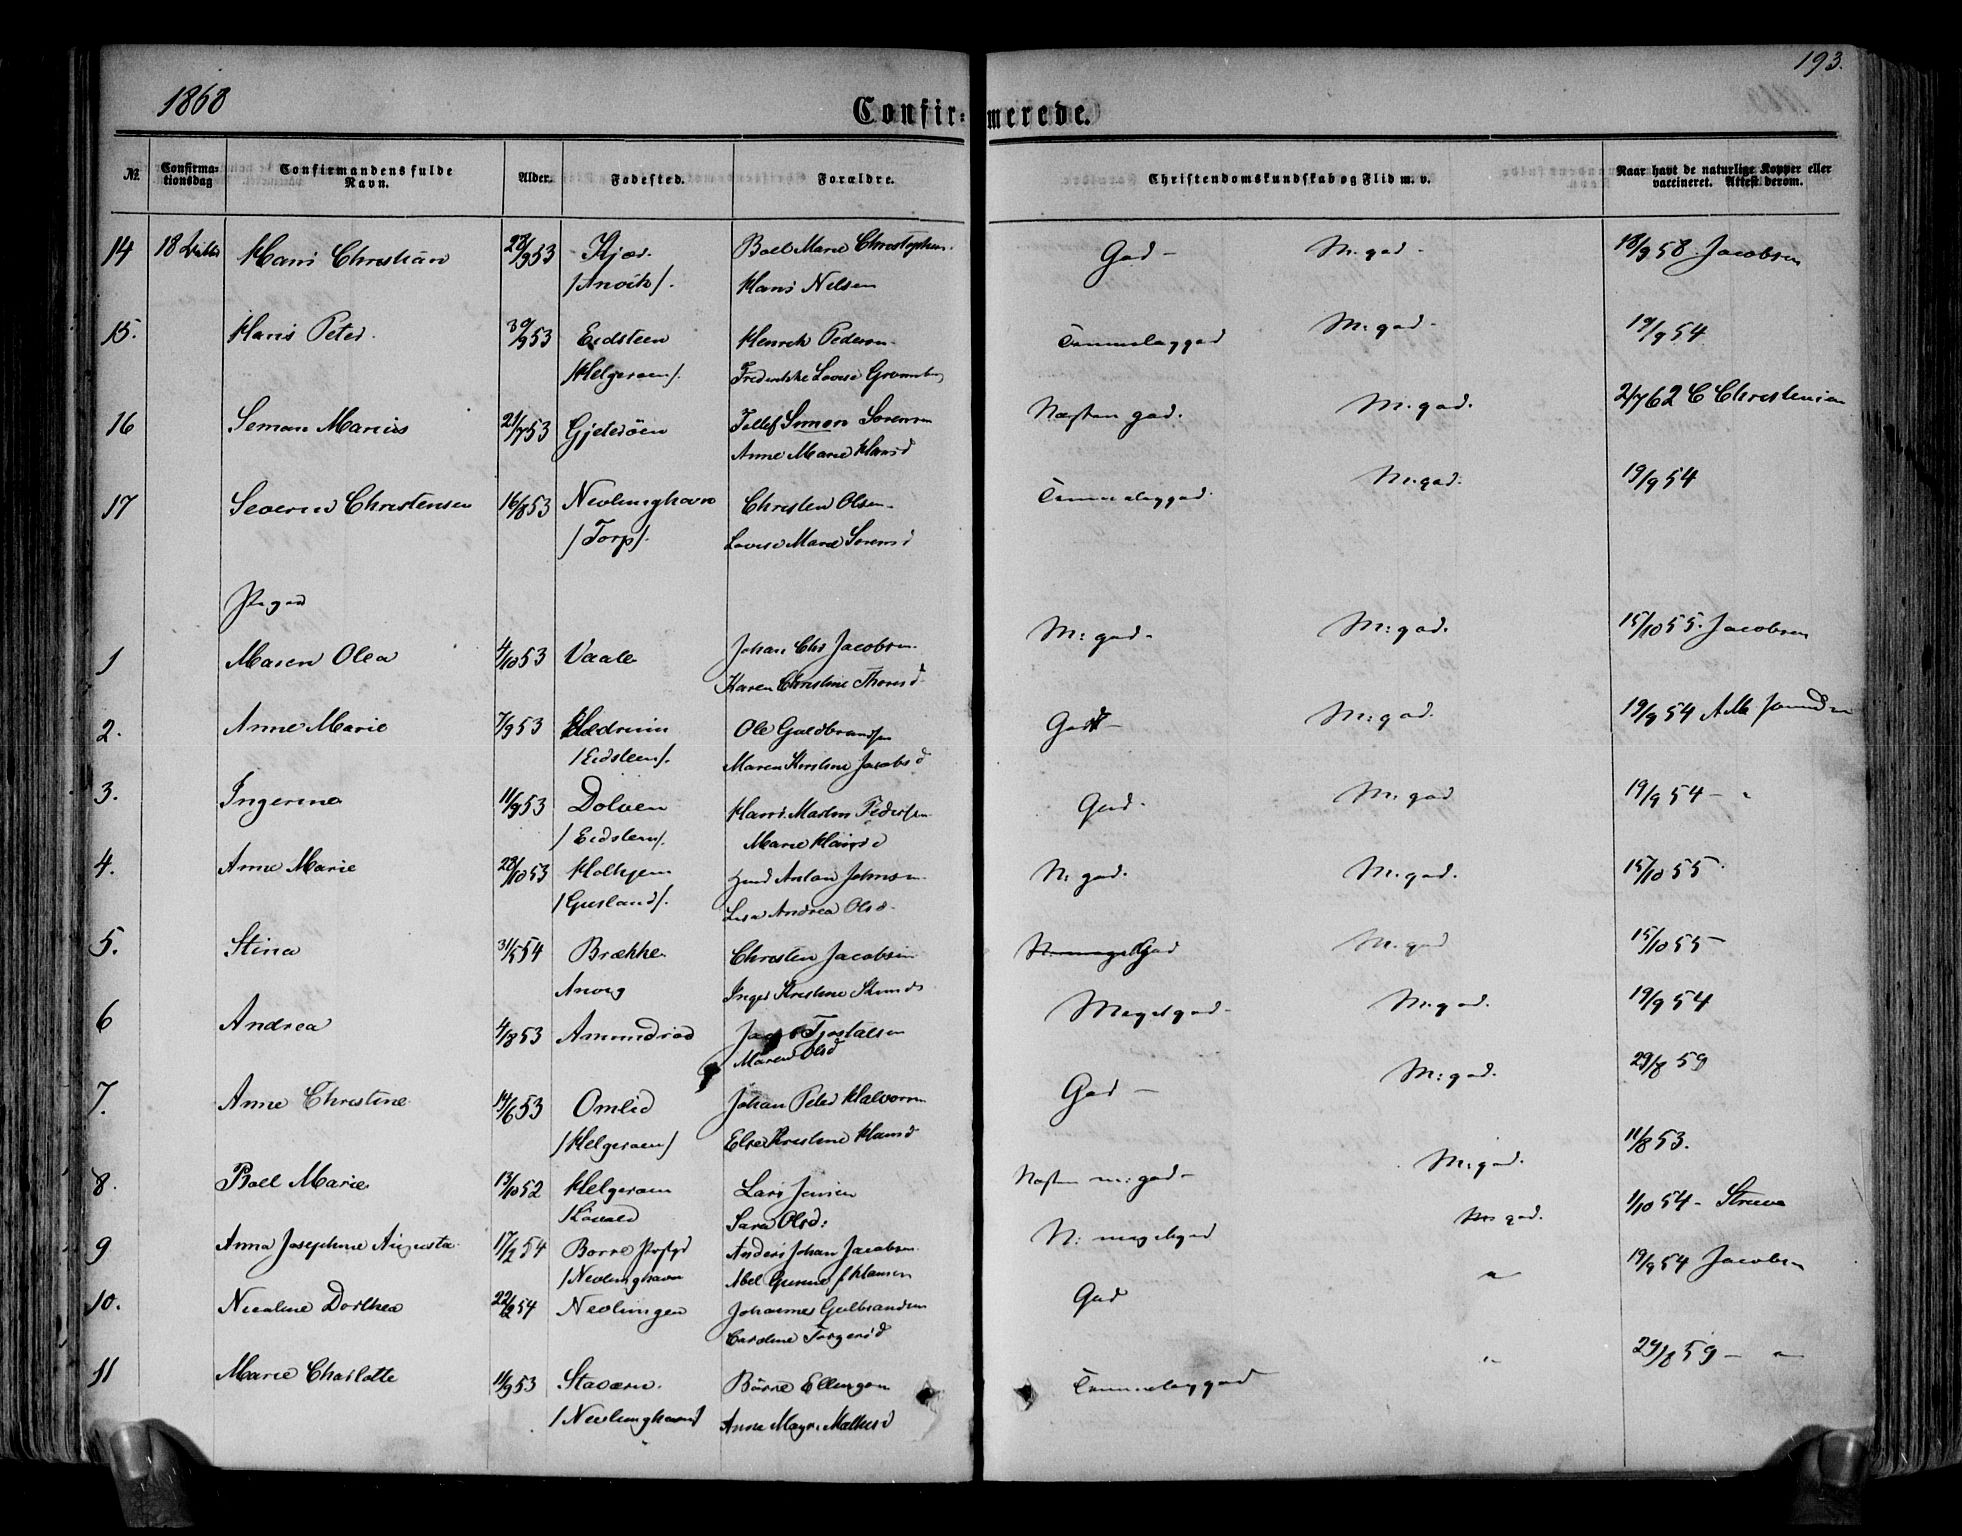 1868
193.
Confirmerede.
No.
Confirmationsdag
Confirmandens fulde Navn.
Alder.
Fødested.
Forældre.
Christendomskundskab og Flid m. v.
Naar havt de naturlige Kopper eller vaccineret. Attest derom.
14 Hans Christian 28/9 53 Kjær Boel Marie God - M: god - 18/9 58 Jacobsen
/Anvik/. Hans Nilsen
15. Hans Peter 30/9 53 Eidsteen Henrik Pedersen Temmelig god M: god - 19/9 54
/Helgeroen/. Frederikke Lovise
16 Marius 21/7 53 Gjeterøen Tellef Simon Sørensen Næsten god. M: god. 2/7 62 C Christensen
Anne Marie Hansd
17 Severin Christensen 16/8 53 Nevlunghavn Christen Olsen Temmelig god. M: god. 19/9 54
/Torp/. Lovise Marie Sørensd
Piger
1 Maren Olea 4/10 53 Vaale Johan Chr Jacobsen M: god - M: god. 15/10 55. Jacobsen
Karen Christine Thoresd
2. Anne Marie 7/9 53 Hedrum Ole Guldbrandsen Godt - M: god. 19/9 54
/Eidsteen/. Maren Kirstine Jacobsd
3. Ingerine 11/9 53 Dolven Hans Martin Pedersen God. M: god 19/9 54 - "
/Eidsteen/. Marie Hansd
4. Anne Marie 28/10 53 Anton Johnsen N: god. M: god. 15/10 55
/Gusland/. Andrea Olsd.
5. Stina 31/5 54 Brække Christen Jacobsen God M: god 15/10 55 -
Anvig Inger Kirstine
6 Andrea 4/8 53 Amundrød Meget god - M: god. 19/9 54
Maren Olsd
7. Anne Christine 14/6 53 Omlid Johan Peter Halvorsen God - M: god. 29/8 59
/Helgeroen/ Else Kirstine Hansd
8. Boel Marie 13/10 52 Helgeroen Lars Jensen Næsten m: god - M: god. 11/8 53.
Sara Olsd:
9 Anna Josephine Augusta 17/2 54 Borre Præstgd Anders Johan Jacobsen N: meget god M: god. 1/10 54 - Struve
/Nevlunghavn Abel Gurine f Hansen
10. Nicoline Dorthea 22/2 54 Nevlungen Johannes Gulbrandsen God " 19/9 54 Jacobsen
Caroline Torgersd
11 Marie Charlotte 11/9 53 Stavern. Børre Ellingsen Temmelig god " 29/8 59 - "
/Nevlunghavn/ Anne